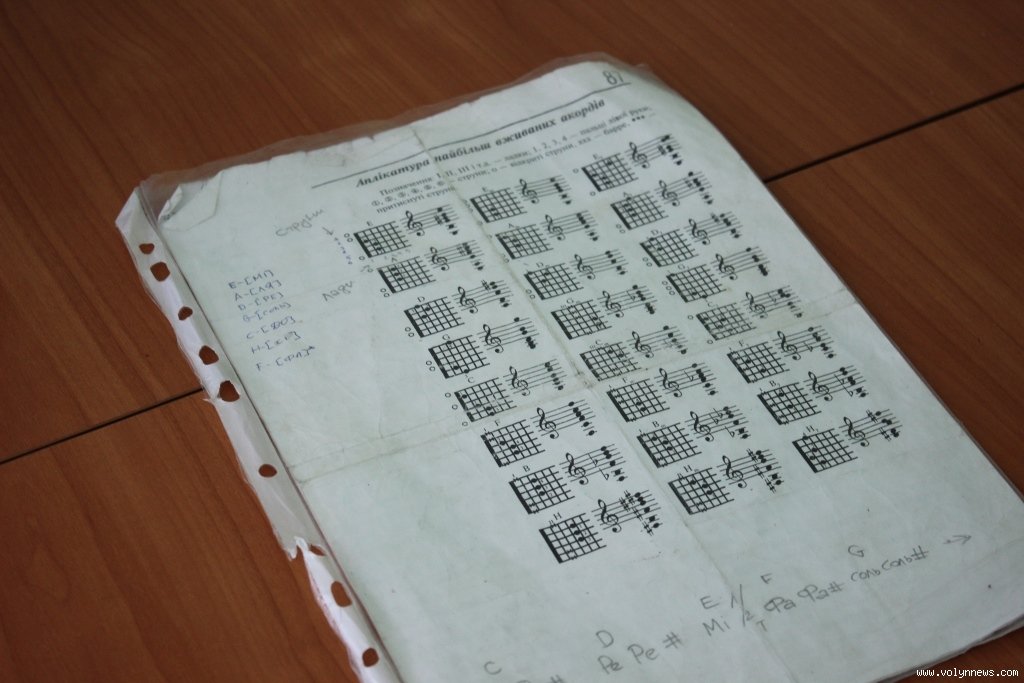 81
Аплікатура найбільш вживаних акордів
Позначення: I, II, III і т.д. — лади; 1, 2, 3, 4 — пальці лівої руки;
①, ②, ③, ④, ⑤, ⑥ — струни; о — відкриті струни; ххх — барре;
притиснуті струни
струни
лади
E-[МІ]
A-[ЛЯ]
D-[РЕ]
G-[соль]
C-[ДО]
H-[сі]
F-[ФА]
E
A
D
G
C
F
B
H
A
D
G
C
F
B
H
E
A
D
G
C
F
B
H
C D E F G
Ре Ре# Мі 1/2 т Фа Фа# соль соль# →
www.volynnews.com